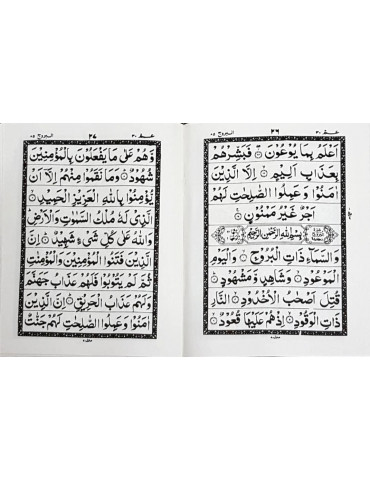 عـم ٣٠
٣٦
البروج ٨٥
اَعْلَمُ بِمَا يُوْعُوْنَ ۞ فَبَشِّرْهُمْ
بِعَذَابٍ اَلِيْمٍ ۞ اِلَّا الَّذِيْنَ
اٰمَنُوْا وَعَمِلُوا الصّٰلِحٰتِ لَهُمْ
اَجْرٌ غَيْرُ مَمْنُوْنٍ ۞
بِسْمِ اللّٰهِ الرَّحْمٰنِ الرَّحِيْمِ
وَالسَّمَآءِ ذَاتِ الْبُرُوْجِ ۞ وَالْيَوْمِ
الْمَوْعُوْدِ ۞ وَشَاهِدٍ وَّمَشْهُوْدٍ ۞
قُتِلَ اَصْحٰبُ الْاُخْدُوْدِ ۞ النَّارِ
ذَاتِ الْوَقُوْدِ ۞ اِذْ هُمْ عَلَيْهَا قُعُوْدٌ ۞
عـم ٣٠
٣٧
البروج ٨٥
وَّهُمْ عَلٰى مَا يَفْعَلُوْنَ بِالْمُؤْمِنِيْنَ
شُهُوْدٌ ۞ وَمَا نَقَمُوْا مِنْهُمْ اِلَّآ اَنْ
يُّؤْمِنُوْا بِاللّٰهِ الْعَزِيْزِ الْحَمِيْدِ ۞
الَّذِيْ لَهٗ مُلْكُ السَّمٰوٰتِ وَالْاَرْضِ
وَاللّٰهُ عَلٰى كُلِّ شَيْءٍ شَهِيْدٌ ۞ اِنَّ
الَّذِيْنَ فَتَنُوا الْمُؤْمِنِيْنَ وَالْمُؤْمِنٰتِ
ثُمَّ لَمْ يَتُوْبُوْا فَلَهُمْ عَذَابُ جَهَنَّمَ
وَلَهُمْ عَذَابُ الْحَرِيْقِ ۞ اِنَّ الَّذِيْنَ
اٰمَنُوْا وَعَمِلُوا الصّٰلِحٰتِ لَهُمْ جَنّٰتٌ